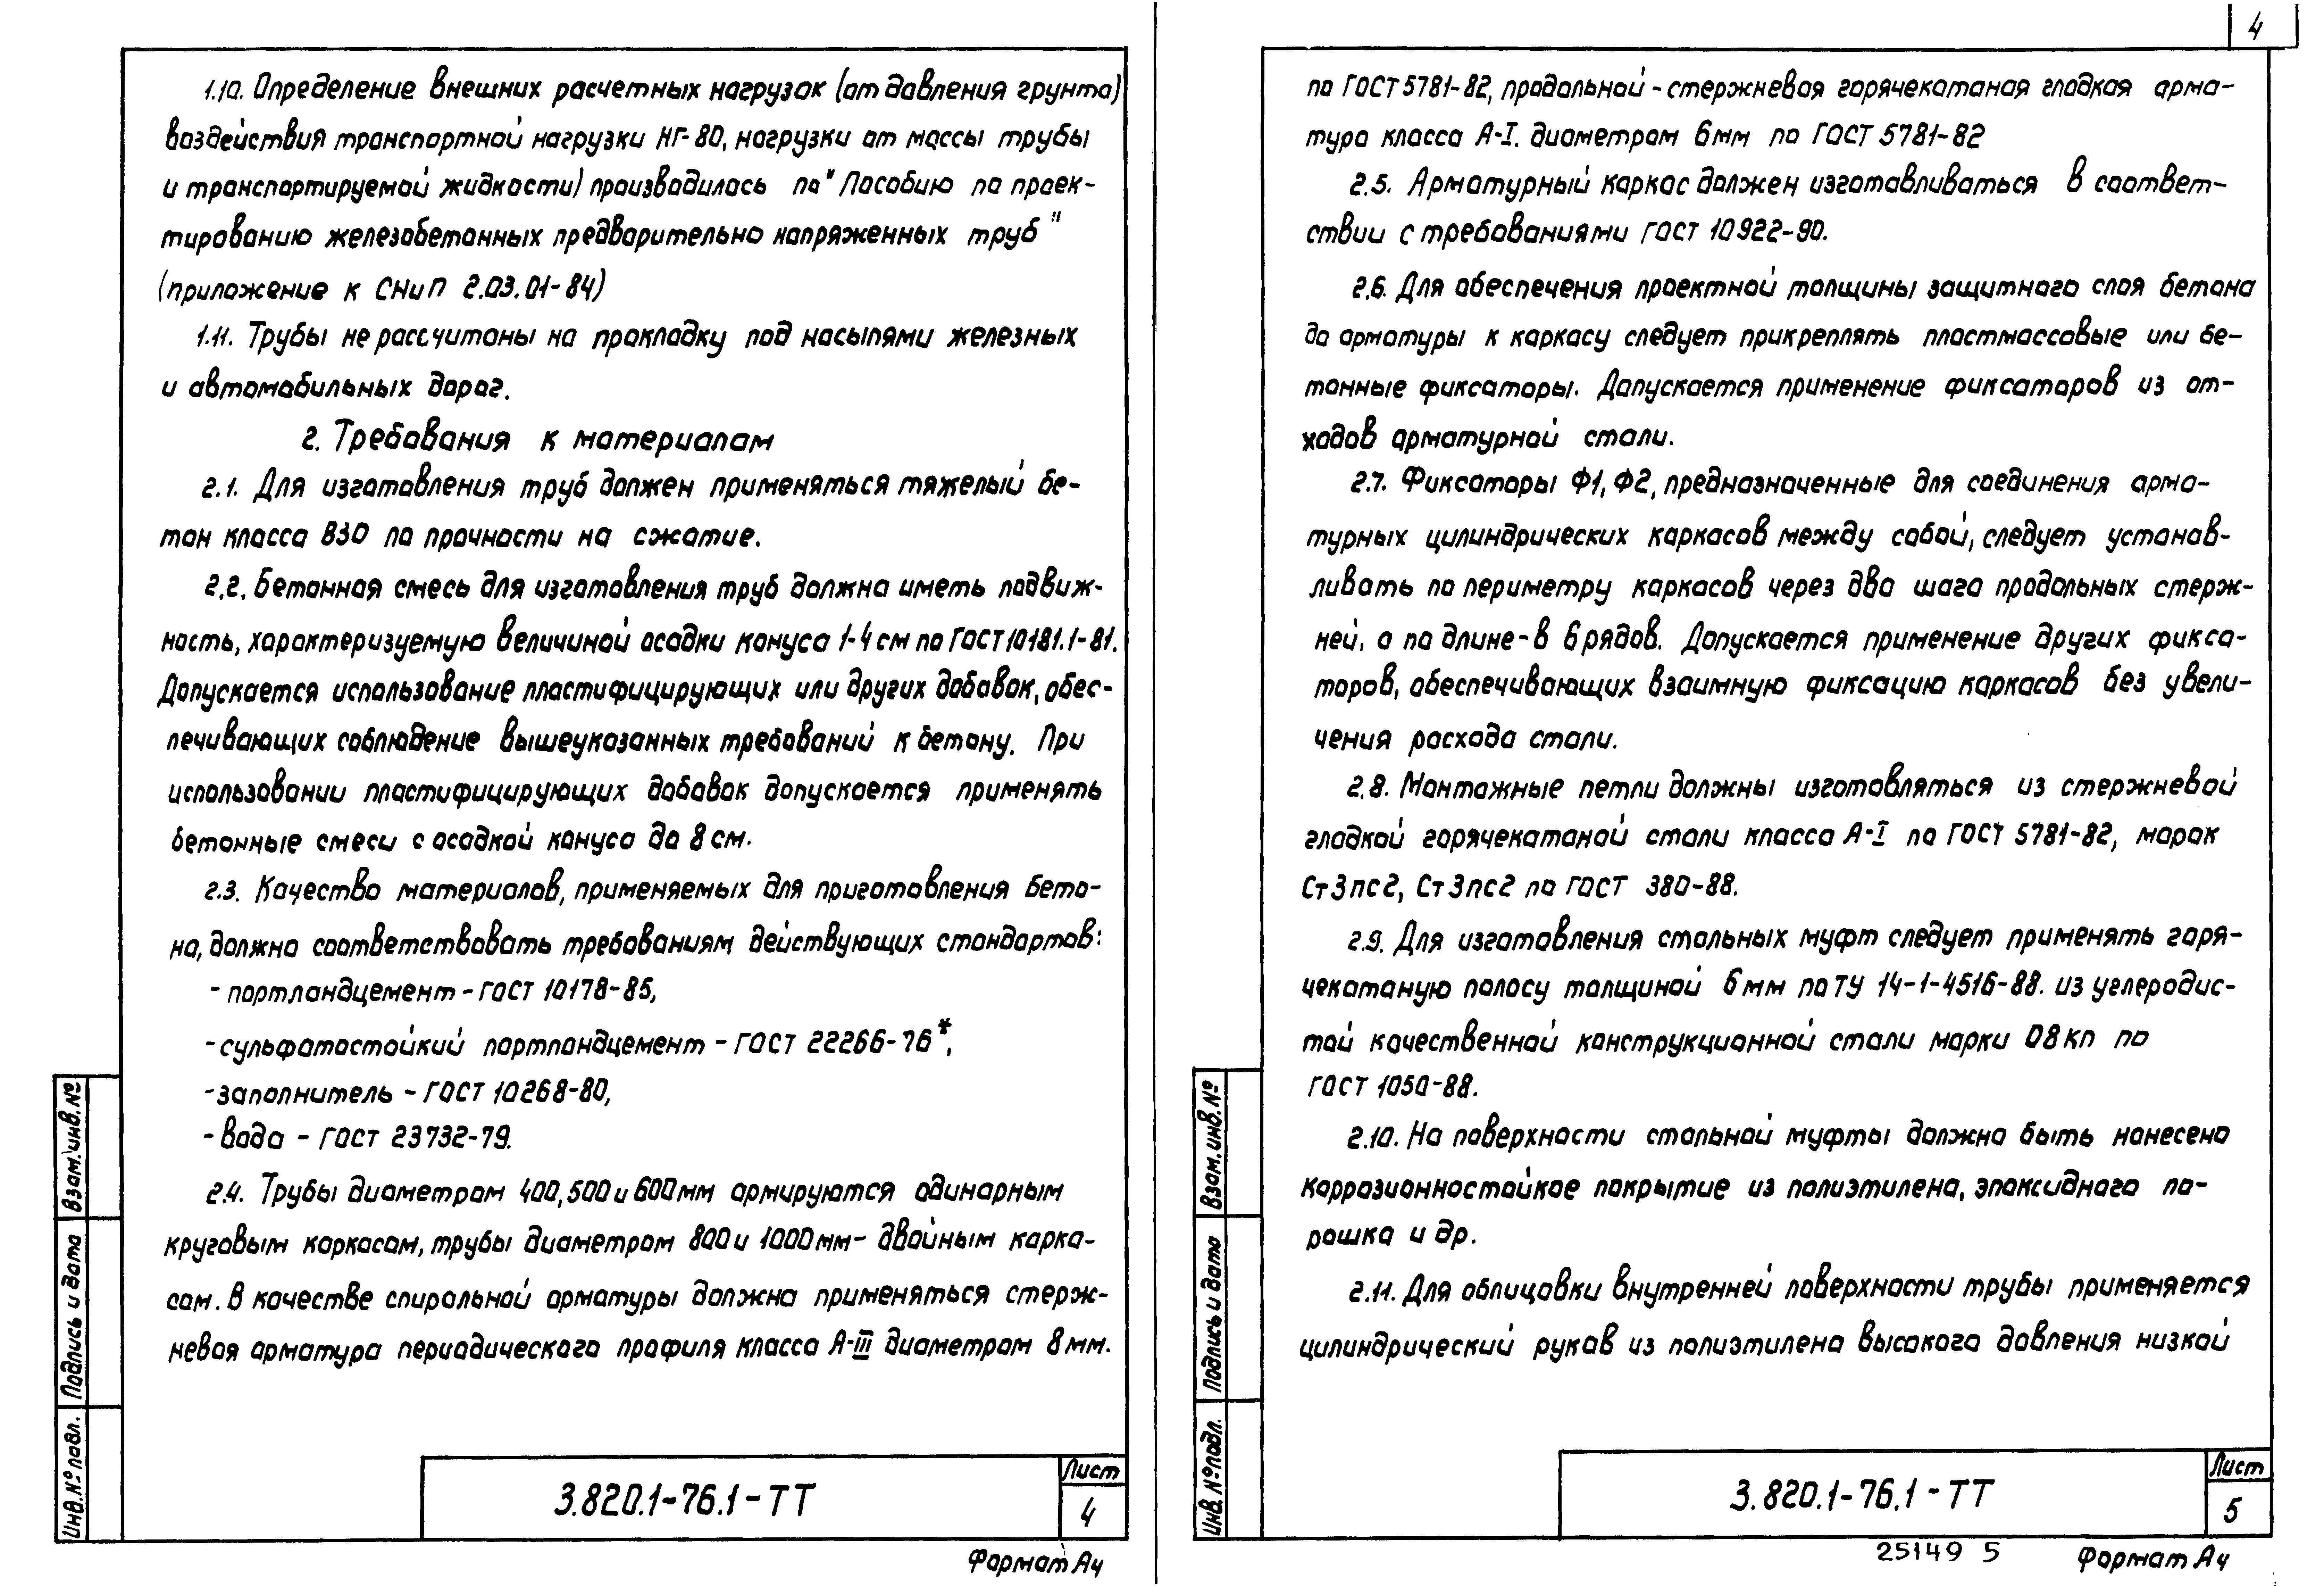 1.10. Определение внешних расчетных нагрузок (от давления грунта)
воздействия транспортной нагрузки НГ-80, нагрузки от массы трубы
и транспортируемой жидкости) производилась по "Пособию по проек-
тированию железобетонных предварительно напряженных труб"
(приложение к СНиП 2.03.01-84)
1.11. Трубы не рассчитаны на прокладку под насыпями железных
и автомобильных дорог.
2. Требования к материалам
2.1. Для изготовления труб должен применяться тяжелый бе-
тон класса В30 по прочности на сжатие.
2.2. Бетонная смесь для изготовления труб должна иметь подвиж-
ность, характеризуемую величиной осадки конуса 1-4 см по ГОСТ 10181.1-81.
Допускается использование пластифицирующих или других добавок, обес-
печивающих соблюдение вышеуказанных требований к бетону. При
использовании пластифицирующих добавок допускается применять
бетонные смеси с осадкой конуса до 8 см.
2.3. Качество материалов, применяемых для приготовления бето-
на, должно соответствовать требованиям действующих стандартов:
- портландцемент - ГОСТ 10178-85,
- сульфатостойкий портландцемент - ГОСТ 22266-76*,
- заполнитель - ГОСТ 10268-80,
- вода - ГОСТ 23732-79.
2.4. Трубы диаметром 400, 500 и 600 мм армируются одинарным
круговым каркасом, трубы диаметром 800 и 1000 мм - двойным карка-
сом. В качестве спиральной арматуры должна применяться стерж-
невая арматура периодического профиля класса А-III диаметром 8 мм.
Взам. инв. №
Подпись и дата
Инв. № подл.
3.820.1-76.1-ТТ
Лист
4
Формат А4
4
по ГОСТ 5781-82, продольной - стержневая горячекатаная гладкая арма-
тура класса А-I. диаметром 6 мм по ГОСТ 5781-82
2.5. Арматурный каркас должен изготавливаться в соответ-
ствии с требованиями ГОСТ 10922-90.
2.6. Для обеспечения проектной толщины защитного слоя бетона
до арматуры к каркасу следует прикреплять пластмассовые или бе-
тонные фиксаторы. Допускается применение фиксаторов из от-
ходов арматурной стали.
2.7. Фиксаторы Ф1, Ф2, предназначенные для соединения арма-
турных цилиндрических каркасов между собой, следует устанав-
ливать по периметру каркасов через два шага продольных стерж-
ней, а по длине - в 6 рядов. Допускается применение других фикса-
торов, обеспечивающих взаимную фиксацию каркасов без увели-
чения расхода стали.
2.8. Монтажные петли должны изготовляться из стержневой
гладкой горячекатаной стали класса А-I по ГОСТ 5781-82, марок
Ст3пс2, Ст3пс2 по ГОСТ 380-88.
2.9. Для изготовления стальных муфт следует применять горя-
чекатаную полосу толщиной 6 мм по ТУ 14-1-4516-88. из углеродис-
той качественной конструкционной стали марки 08 кп по
ГОСТ 1050-88.
2.10. На поверхности стальной муфты должно быть нанесено
коррозионностойкое покрытие из полиэтилена, эпоксидного по-
рошка и др.
2.11. Для облицовки внутренней поверхности трубы применяется
цилиндрический рукав из полиэтилена высокого давления низкой
Взам. инв. №
Подпись и дата
Инв. № подл.
3.820.1-76.1-ТТ
Лист
5
25149 5
Формат А4